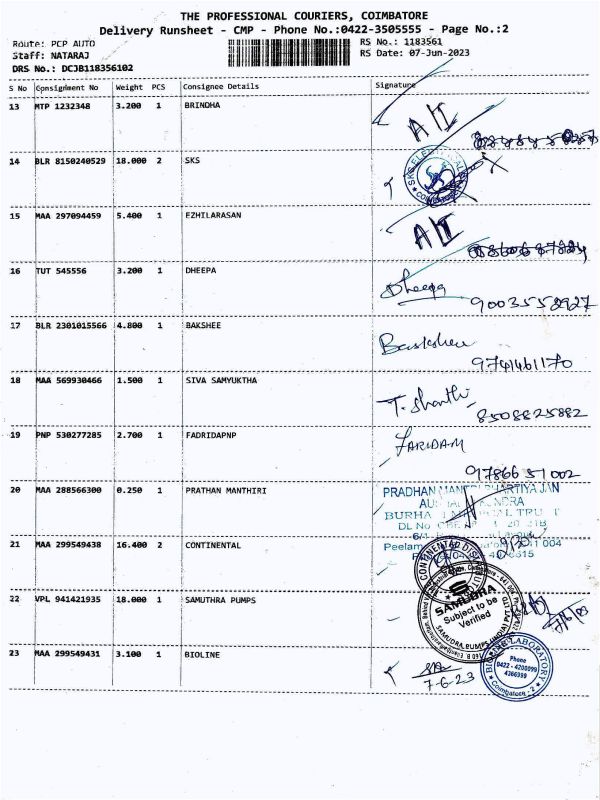 THE PROFESSIONAL COURIERS, COIMBATORE
Delivery Runsheet - CMP - Phone No.:0422-3505555 - Page No.:2
Route: PCP AUTO RS No.: 1183561
Staff: NATARAJ RS Date: 07-Jun-2023
DRS No.: DCJB118356102
S No Consignment No Weight PCS Consignee Details Signature
13 MTP 1232348 3.200 1 BRINDHA
14 BLR 8150240529 18.000 2 SKS
15 MAA 297094459 5.400 1 EZHILARASAN
16 TUT 545556 3.200 1 DHEEPA Dheepa
9003558927
17 BLR 2301015566 4.800 1 BAKSHEE
9741461170
18 MAA 569930466 1.500 1 SIVA SAMYUKTHA T. Shanthi
8508825882
19 PNP 530277285 2.700 1 FADRIDAPNP FARIDAM
9786651002
20 MAA 288566300 0.250 1 PRATHAN MANTHIRI PRADHAN
DL No
21 MAA 299549438 16.400 2 CONTINENTAL
CONTINENTAL
22 VPL 941421935 18.000 1 SAMUTHRA PUMPS
SAMUDRA
Subject to be
Verified
SAMUDRA PUMPS (INDIA) PVT LTD
23 MAA 299549431 3.100 1 BIOLINE
7-6-23
LABORATORY
Phone
0422 - 4200099
4366099
Coimbatore - 2